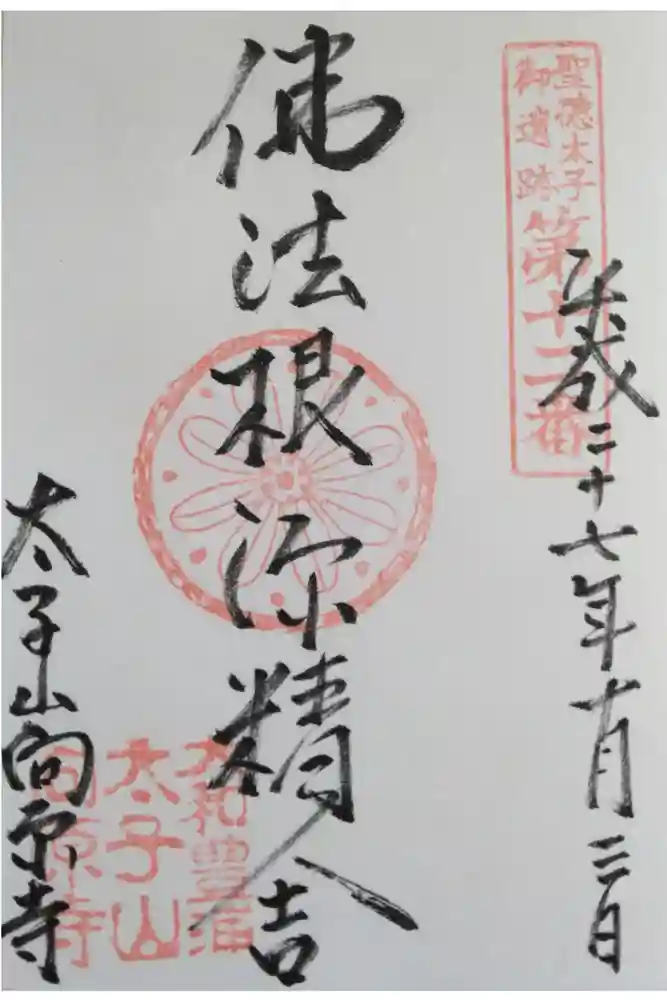 聖徳太子
御遺跡
第十二番
平成二十七年十月三日
佛法根源精舎
太子山向原寺
大和豊浦
太子山
向原寺